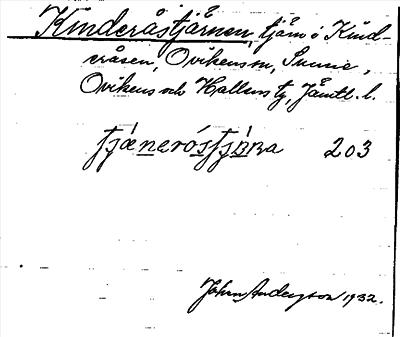 Kinderåstjärnen, tjärn i Kind-
eråsen, Ovikens sn, Sunne,
Ovikens och Hallens tg, Jämtl. l.
203
John Anderzon 1932.